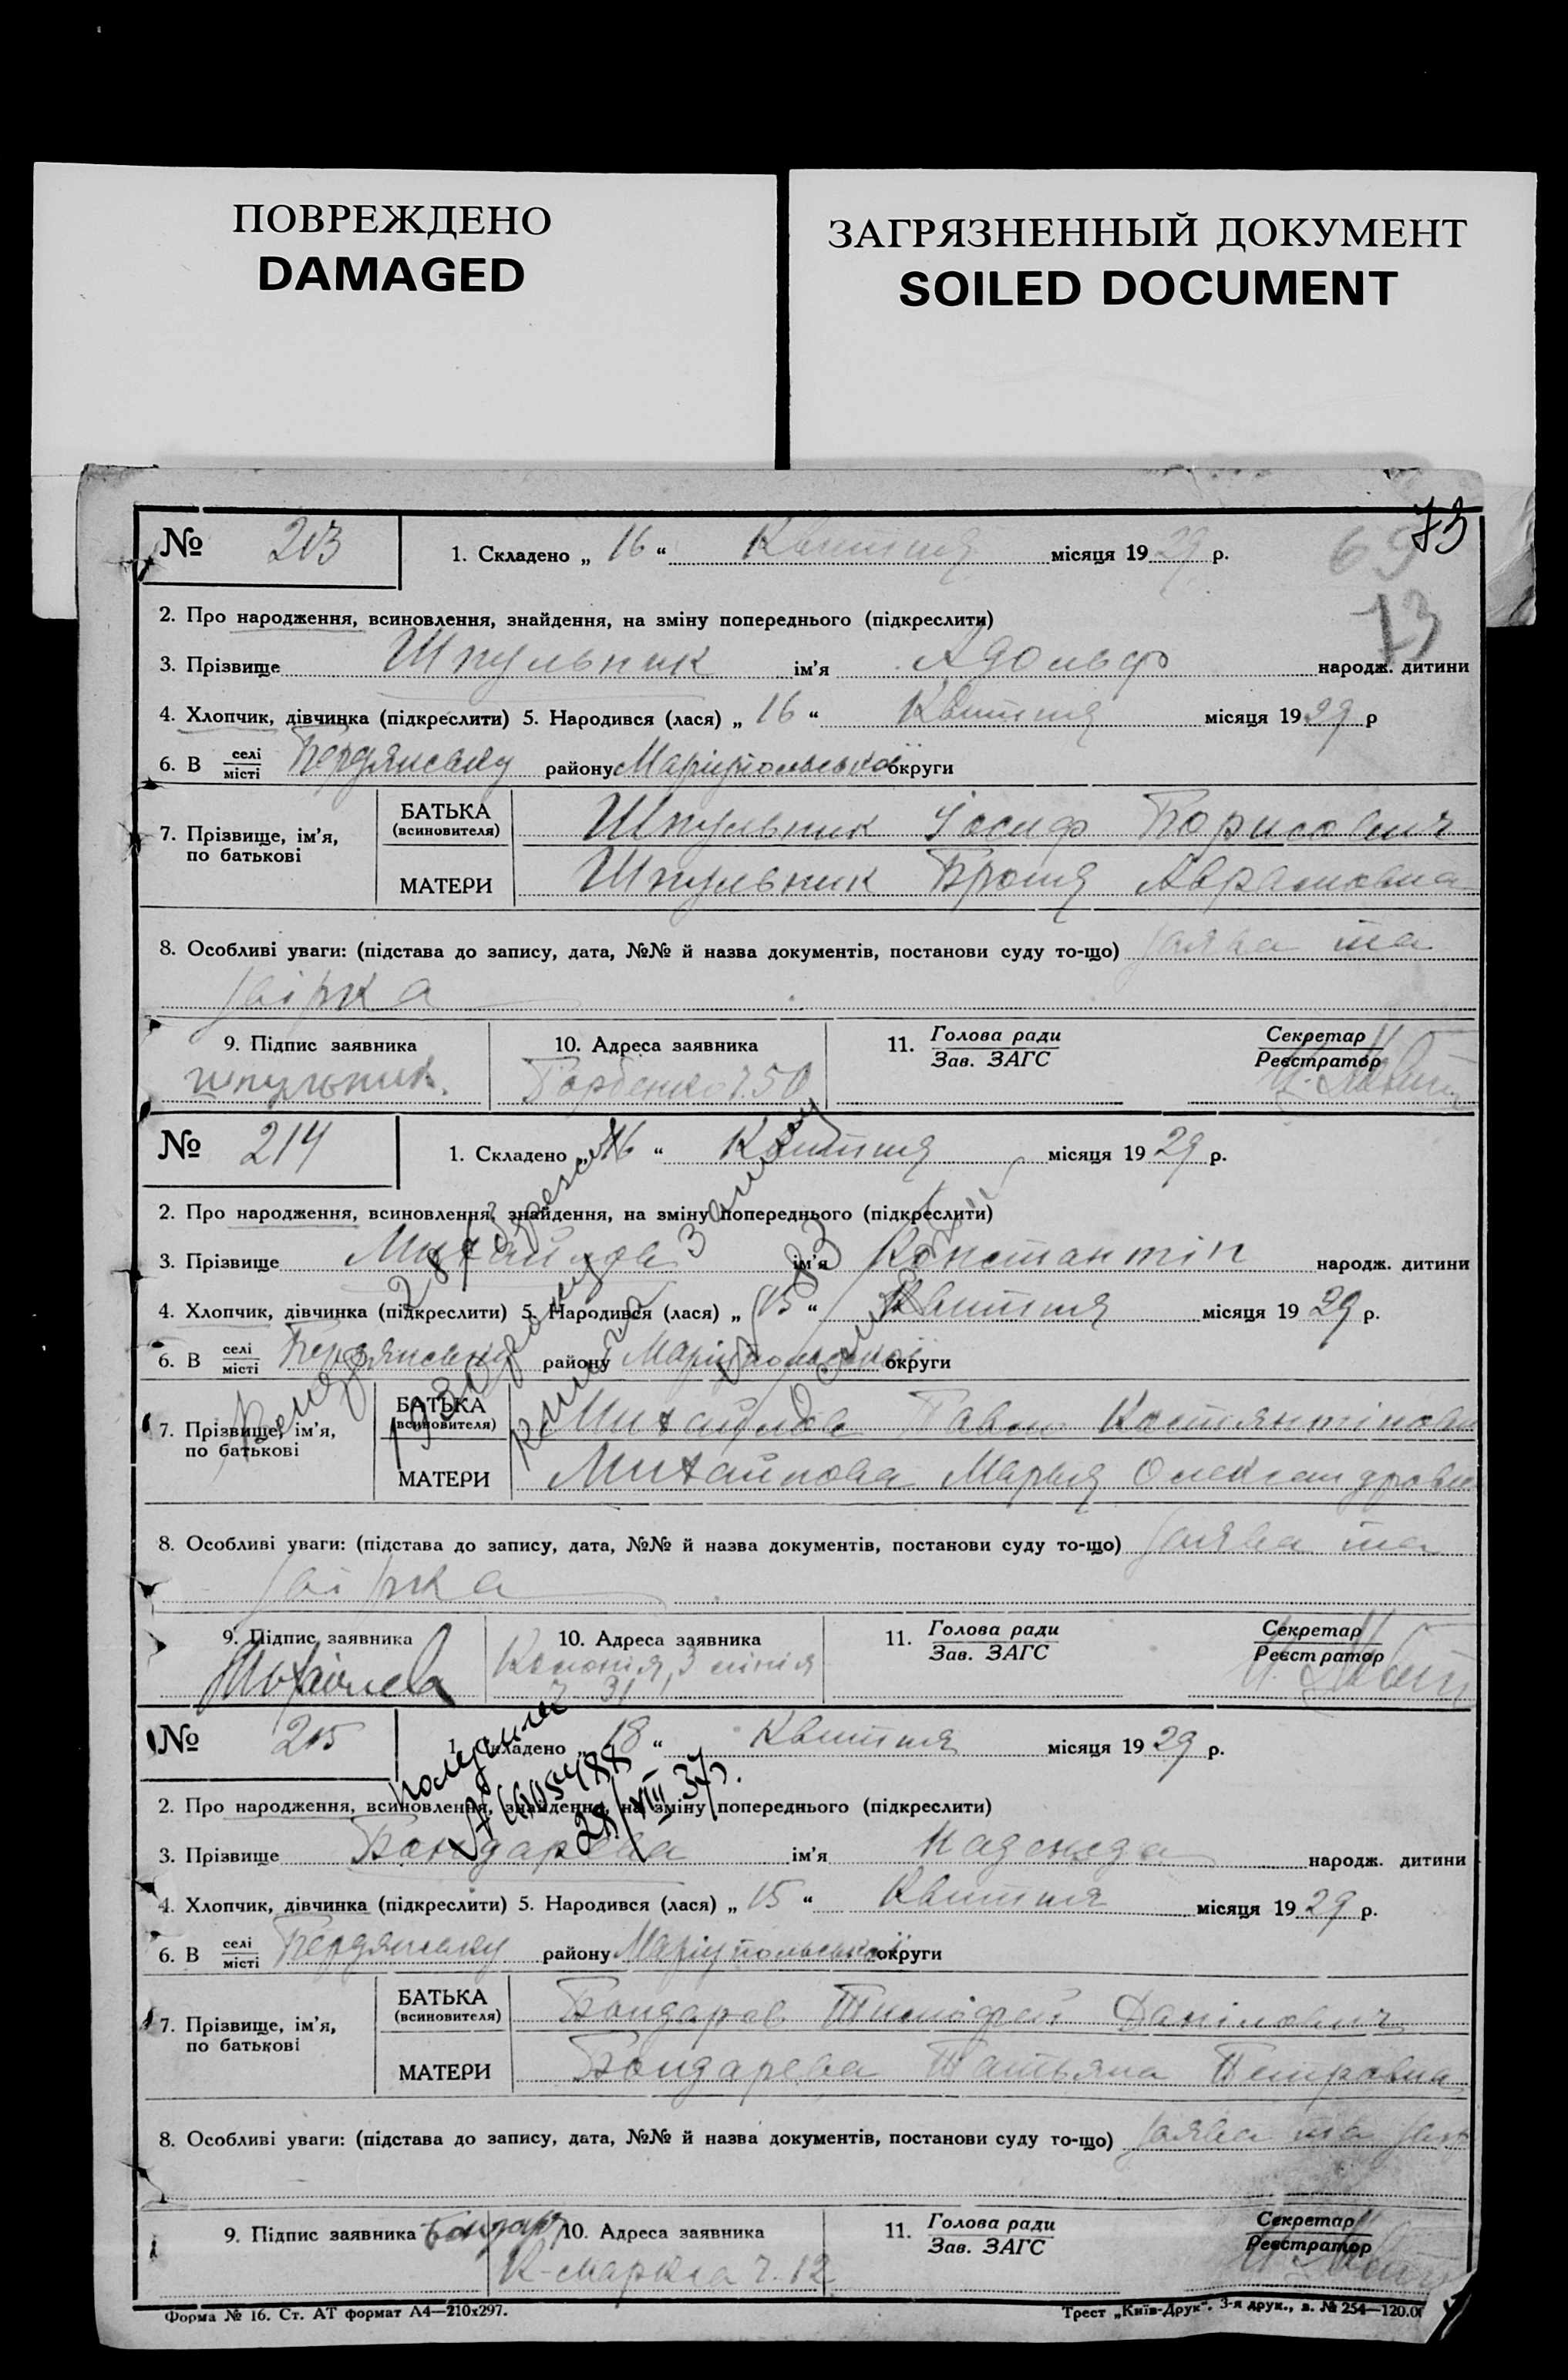 ПОВРЕЖДЕНО
DAMAGED
ЗАГРЯЗНЕННЫЙ ДОКУМЕНТ
SOILED DOCUMENT
73
69
73
№ 213
1. Складено „ 16 “ Квитня місяця 19 29 р.
2. Про народження, всиновлення, знайдення, на зміну попереднього (підкреслити)
3. Прізвище Шпульник ім’я Адольф народж. дитини
4. Хлопчик, дівчинка (підкреслити) 5. Народився (лася) „ 16 “ Квитня місяця 19 29 р
6. В селі місті Бердянську району Маріупольської округи
7. Прізвище, ім’я, по батькові
БАТЬКА (всиновителя) Шпульник Іосиф Борисович
МАТЕРИ Шпульник Броня Аврамовна
8. Особливі уваги: (підстава до запису, дата, №№ й назва документів, постанови суду то-що) заява та
звірка
9. Підпис заявника
10. Адреса заявника
11. Голова ради Зав. ЗАГС
Секретар Реєстратор
Шпульник.
Горбенко ч. 50
№ 214
1. Складено „ 16 “ Квитня місяця 19 29 р.
2. Про народження, всиновлення, знайдення, на зміну попереднього (підкреслити)
3. Прізвище Михайлов ім’я Константін народж. дитини
4. Хлопчик, дівчинка (підкреслити) 5. Народився (лася) „ 15 “ Квитня місяця 19 29 р.
6. В селі місті Бердянську району Маріупольської округи
7. Прізвище, ім’я, по батькові
БАТЬКА (всиновителя) Михайлов Павло Костянтінович
МАТЕРИ Михайлова Марья Олександровна
8. Особливі уваги: (підстава до запису, дата, №№ й назва документів, постанови суду то-що) заява та
звірка
9. Підпис заявника
10. Адреса заявника
11. Голова ради Зав. ЗАГС
Секретар Реєстратор
Колонія, 3 лінія
ч 31
№ 215
1. Складено „ 18 “ Квитня місяця 19 29 р.
получила
28/VIII 37 р.
2. Про народження, всиновлення, знайдення, на зміну попереднього (підкреслити)
3. Прізвище Бондарева ім’я Надежда народж. дитини
4. Хлопчик, дівчинка (підкреслити) 5. Народився (лася) „ 15 “ Квитня місяця 19 29 р.
6. В селі місті Бердянську району Маріупольської округи
7. Прізвище, ім’я, по батькові
БАТЬКА (всиновителя) Бондарев Тимофей Данілович
МАТЕРИ Бондарева Татьяна Петровна
8. Особливі уваги: (підстава до запису, дата, №№ й назва документів, постанови суду то-що) заява та
9. Підпис заявника
10. Адреса заявника
11. Голова ради Зав. ЗАГС
Секретар Реєстратор
К-Маркса ч. 12
Форма № 16. Ст. АТ формат А4—210х297.
Трест „Київ-Друк“. 3-я друк., з. № 254—120.0